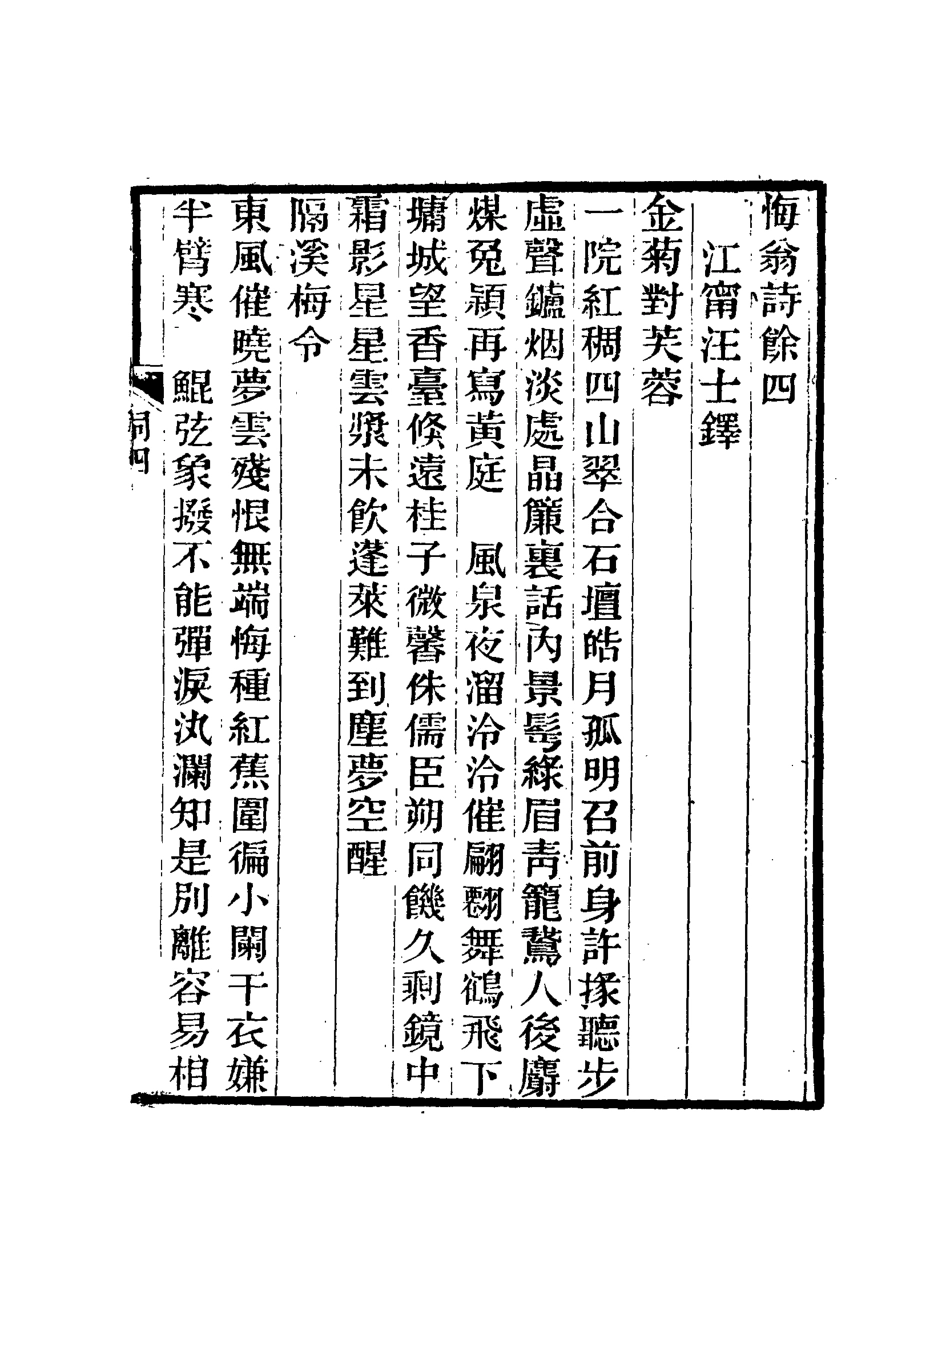 悔翁詩餘四
江甯汪士鐸
金菊對芙蓉
一院紅稠四山翠合石壇皓月孤明召前身許掾聽步
虛聲鑪烟淡處晶簾裏話內景髩綠眉靑籠鵞人後麝
煤兔潁再寫黃庭　風泉夜溜泠泠催翩翾舞鶴飛下
墉城望香臺倏遠桂子微馨侏儒臣朔同饑久剩鏡中
霜影星星雲漿未飮蓬萊難到塵夢空醒
隔溪梅令
東風催曉夢雲殘恨無端悔種紅蕉圍徧小闌干衣嫌
半臂寒　鯤弦象撥不能彈淚汍瀾知是別離容易相
詞四